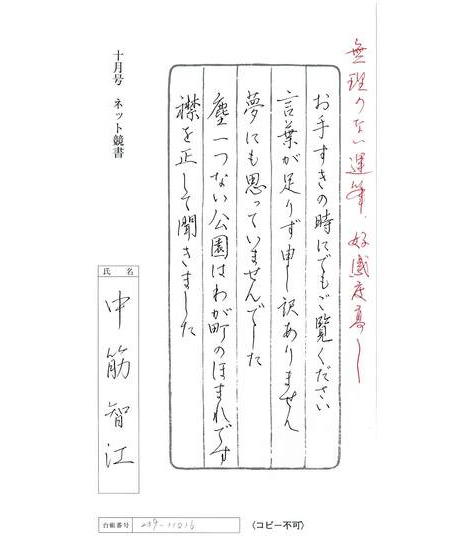 無理のない運筆、好感度高し
お手すきの時にでもご覧ください
言葉が足りず申し訳ありません
夢にも思っていませんでした
塵一つない公園はわが町のほまれです
襟を正して聞きました
十月号 ネット競書
氏名
中筋智江
台紙番号
〈コピー不可〉